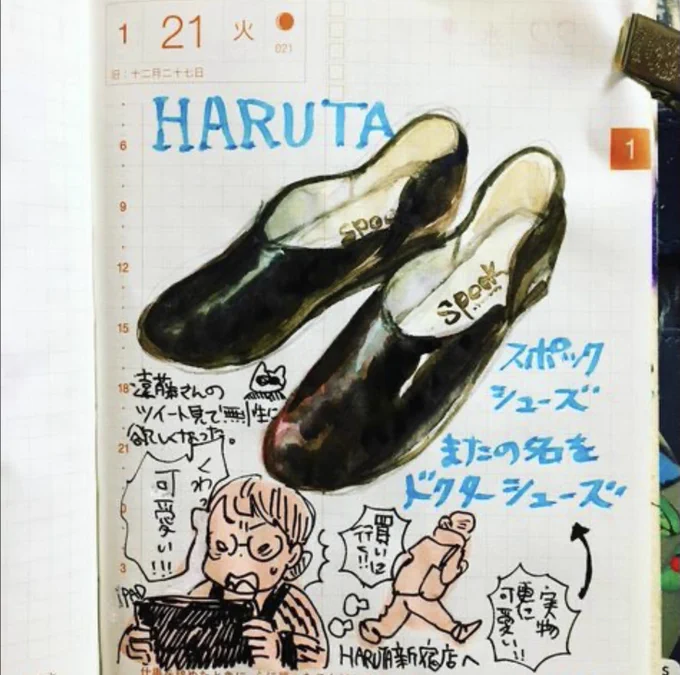 1
21
火
021
旧:十二月二十七日
HARUTA
1
6
9
12
15
18
21
3
spo
spock
スポック
シューズ
またの名を
ドクターシューズ
遠藤さんの
ツイート見て無性に
欲しくなった。
くわっ
可愛い!!!
iPAD
買いに
行く!!
HARUTA新宿店へ
実物
更に
可愛い!!